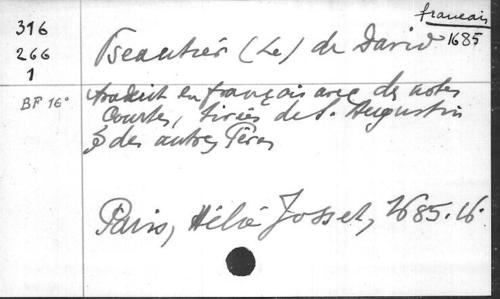 français
1685
316
266
1
BF 16°
Pseautier (Le) de David
traduit en français avec des notes
courtes, tirées de S. Augustin
& des autres Pères
Paris, Hélie Josset, 1685. 16.